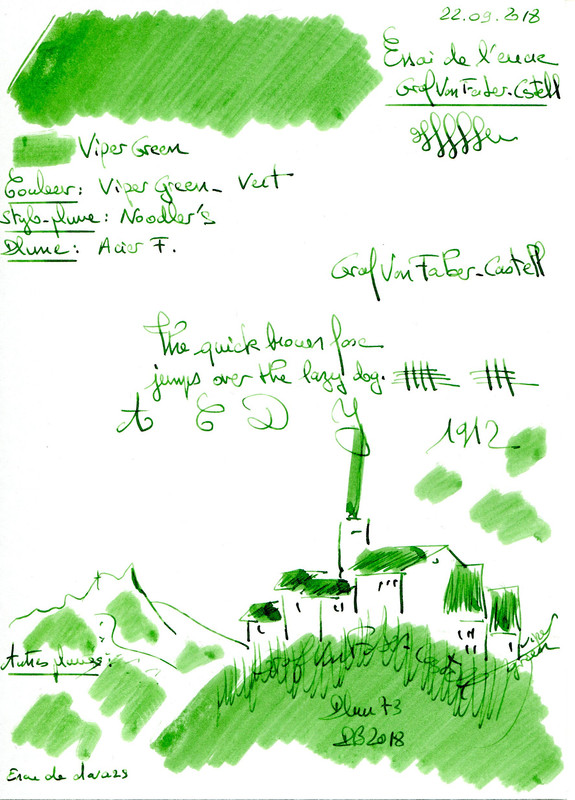 22.09.2018
Essai de l'encre
Graf Von Faber-Castell
Viper Green
Couleur: Viper Green - Vert
Stylo-plume: Noodler's
Plume: Acier F.
Graf Von Faber-Castell
The quick brown fox
jumps over the lazy dog.
A C D Y
1912
Autres plumes:
viper
green
DB2018
Essai de